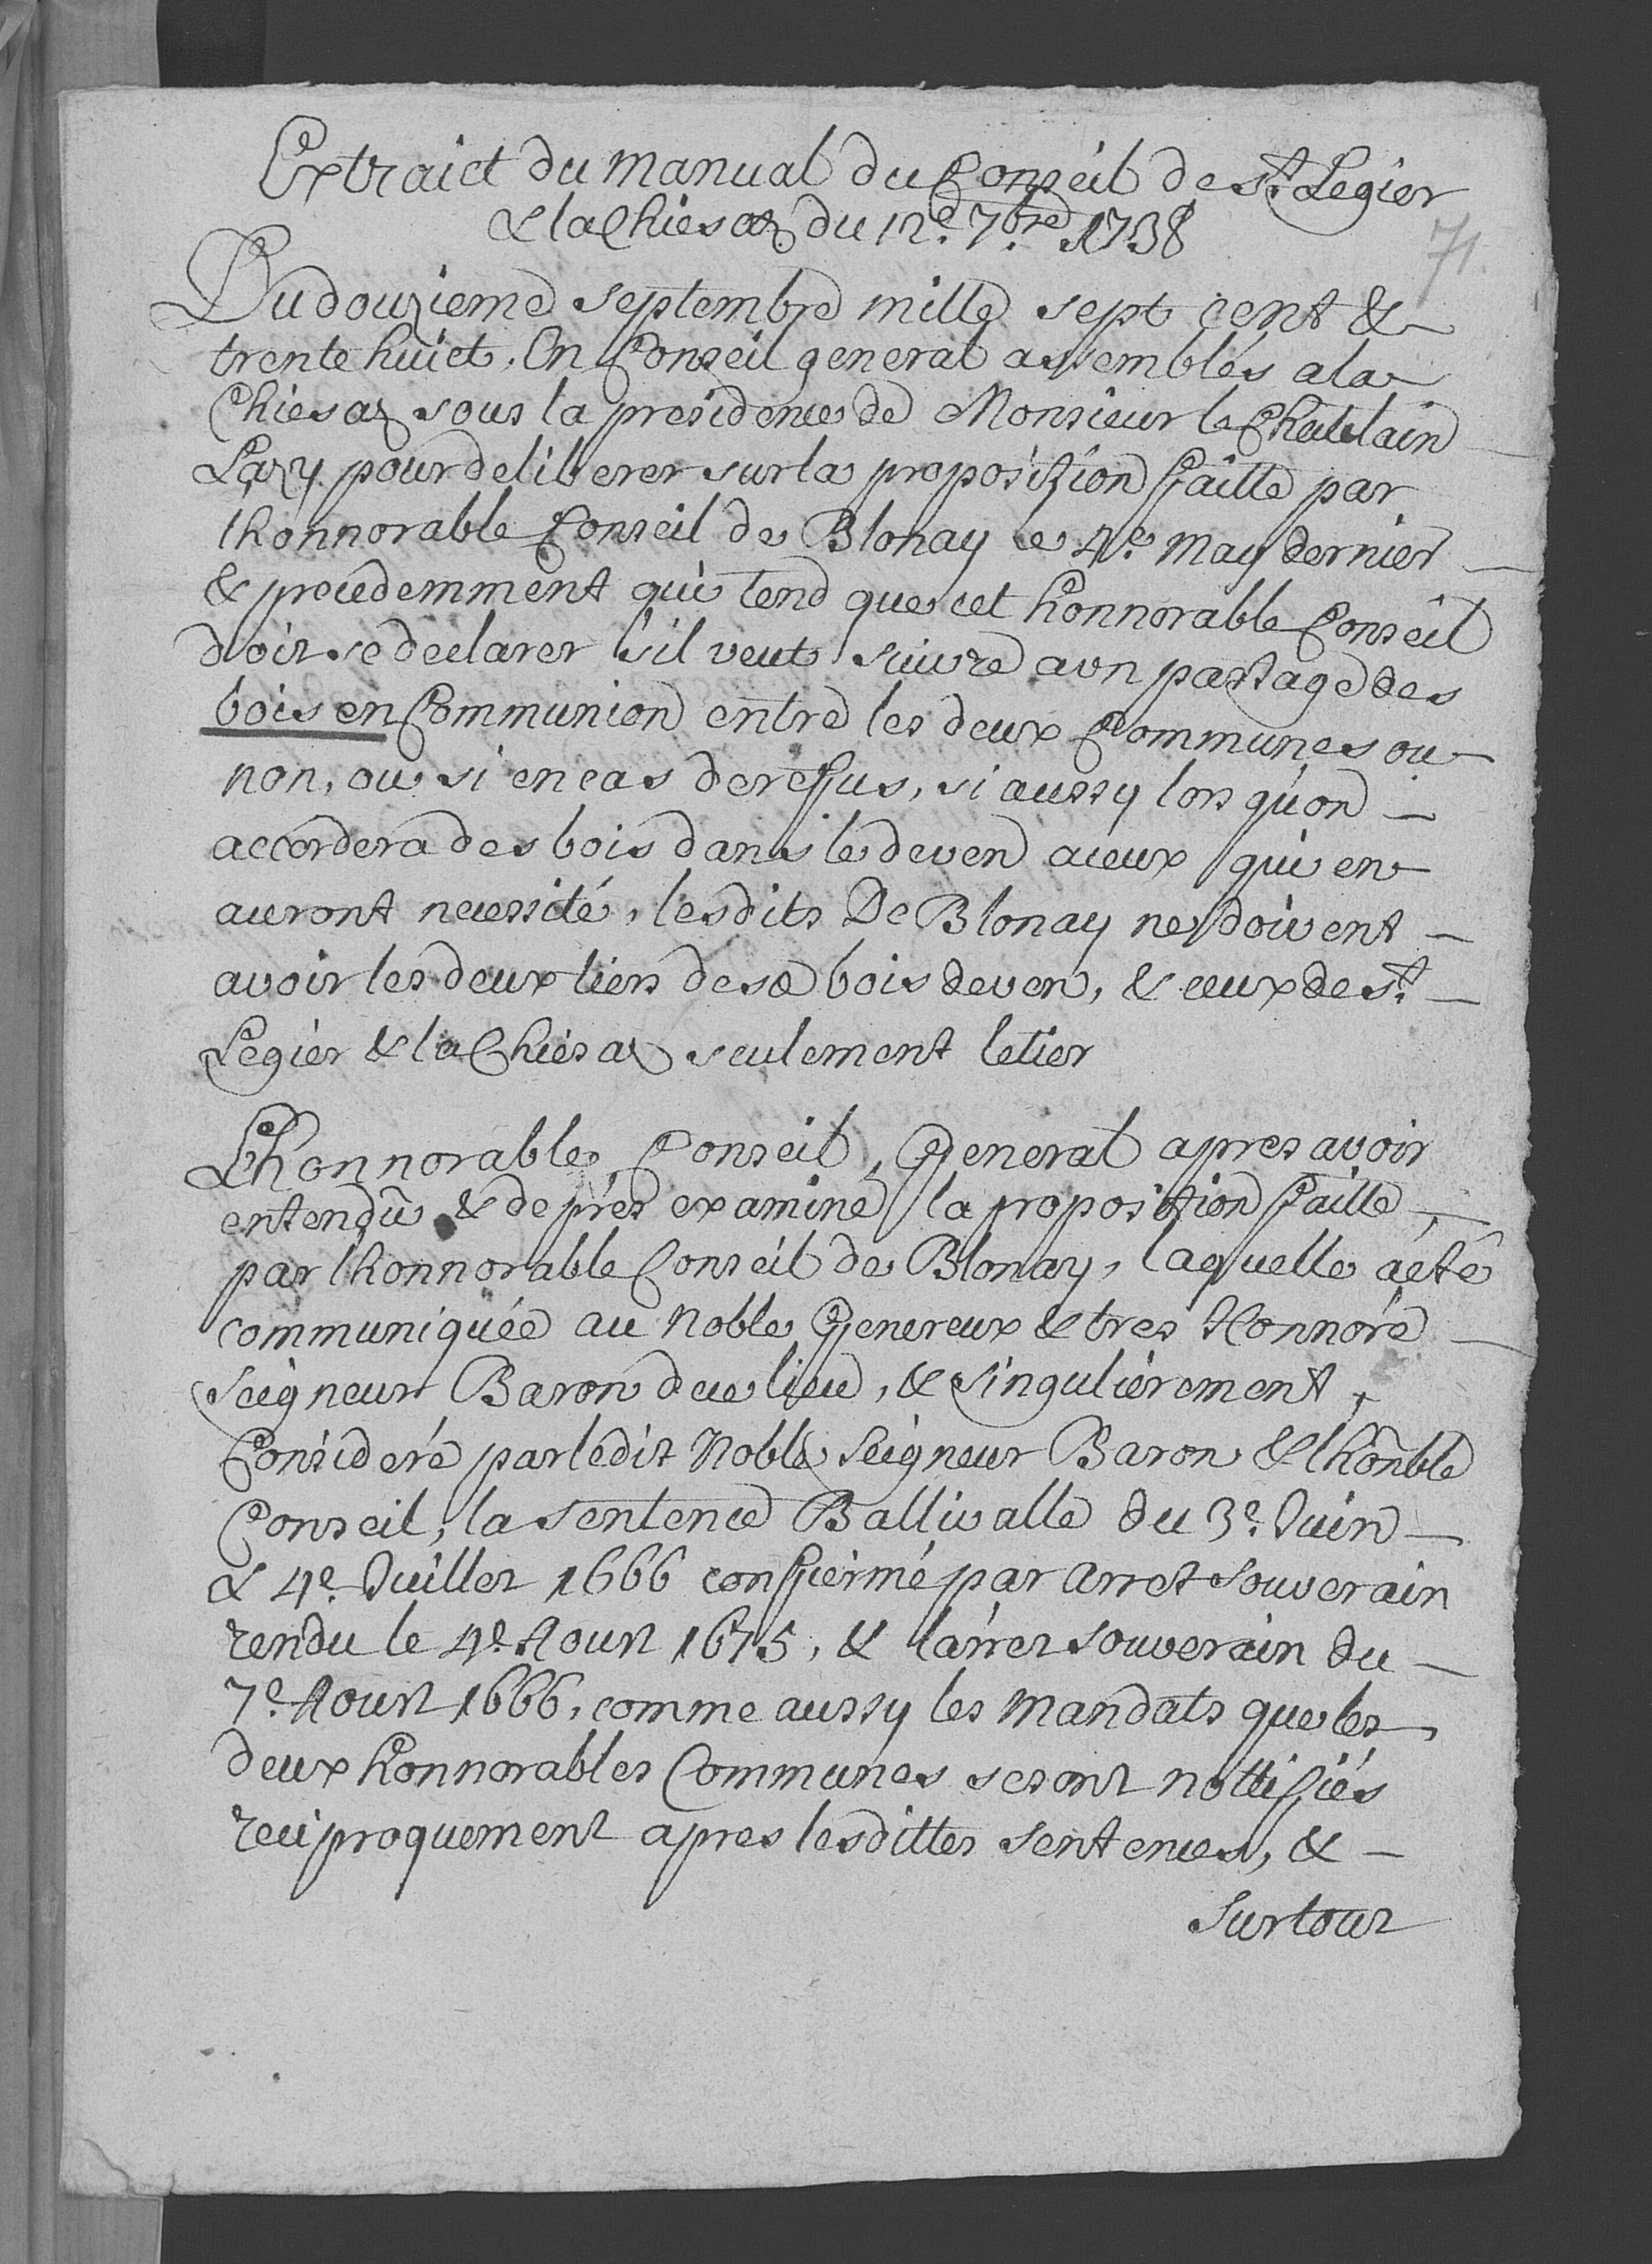 Extraict du manual du Conseil de St Legier
& la Chiesaz du 12e. 7bre. 1738
71.
Du douzieme septembre mille sept cent &
trente huict, En Conseil general assemblés a la
Chiesaz sous la presidence de Monsieur le Chatelain
pour deliberer sur la proposition faitte par
lhonnorable Conseil de Blonay le 4e. May dernier
& precedemment qui tend que cet honnorable Conseil
doit se declarer s'il veut suivre a un partage des
bois en Communion entre les deux Communes ou
non, ou si en cas de reffus, si aussy lors qu'on
accordera des bois dans le deven a ceux qui en
auront necessité, lesdits De Blonay ne doivent
avoir les deux tiers de se bois deven, & ceux de St.
Legier & la Chiesaz seulement le tier
Lhonnorable Conseil General apres avoir
entendu & de prés examiné la proposition faitte
par lhonnorable Conseil de Blonay, laquelle a été
communiquée au Noble Genereux & tres Honnoré
Seigneur Baron de ce lieu, & singulièrement
Consideré par ledit Noble Seigneur Baron & lhonble
Conseil, la sentence Ballivalle du 3e. Juin
& 4e. Juillet 1666 confiermé par arret souverain
rendu le 4e. Aoust 1675, & l'arret souverain du
7e. Aoust 1666, comme aussy les mandats que les
deux honnorables Communes se sont nottifiés
reciproquement apres lesdittes sentences, &
Surtout